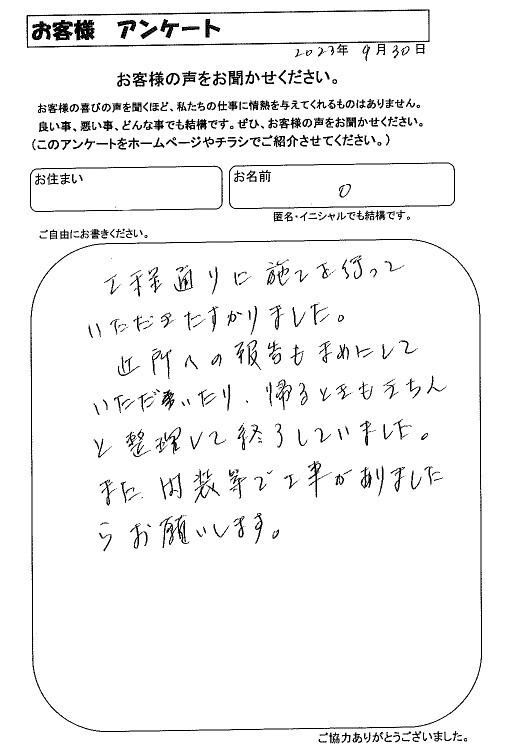 お客様　アンケート
2023年 9月30日
お客様の声をお聞かせください。
お客様の喜びの声を聞くほど、私たちの仕事に情熱を与えてくれるものはありません。
良い事、悪い事、どんな事でも結構です。ぜひ、お客様の声をお聞かせください。
（このアンケートをホームページやチラシでご紹介させてください。）
お住まい
お名前
O
匿名・イニシャルでも結構です。
ご自由にお書きください。
工程通りに施工を行って
いただきたすかりました。
近所への報告もまめにして
いただいたり、帰るときもきちん
と整理して終了していました。
また、内装等で工事がありました
らお願いします。
ご協力ありがとうございました。